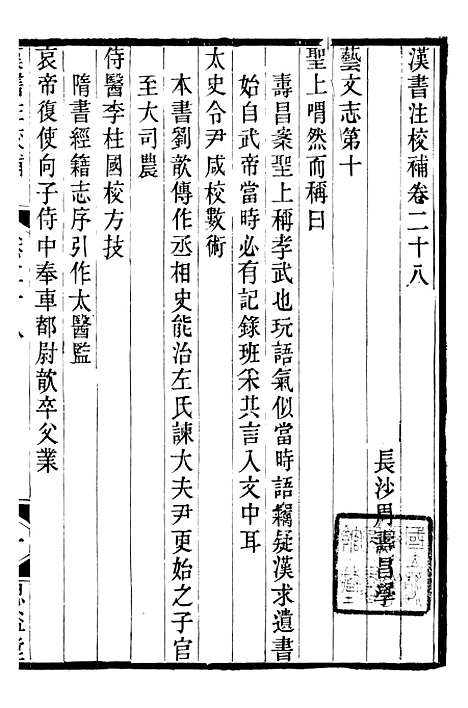 漢書注校補卷二十八
長沙周壽昌學
藝文志第十
聖上喟然而稱曰
壽昌案聖上稱孝武也玩語氣似當時語竊疑漢求遺書
始自武帝當時必有記錄班采其言入文中耳
太史令尹咸校數術
本書劉歆傳作丞相史能治左氏諫大夫尹更始之子官
至大司農
侍醫李柱國校方技
隋書經籍志序引作太醫監
哀帝復使向子侍中奉車都尉歆卒父業